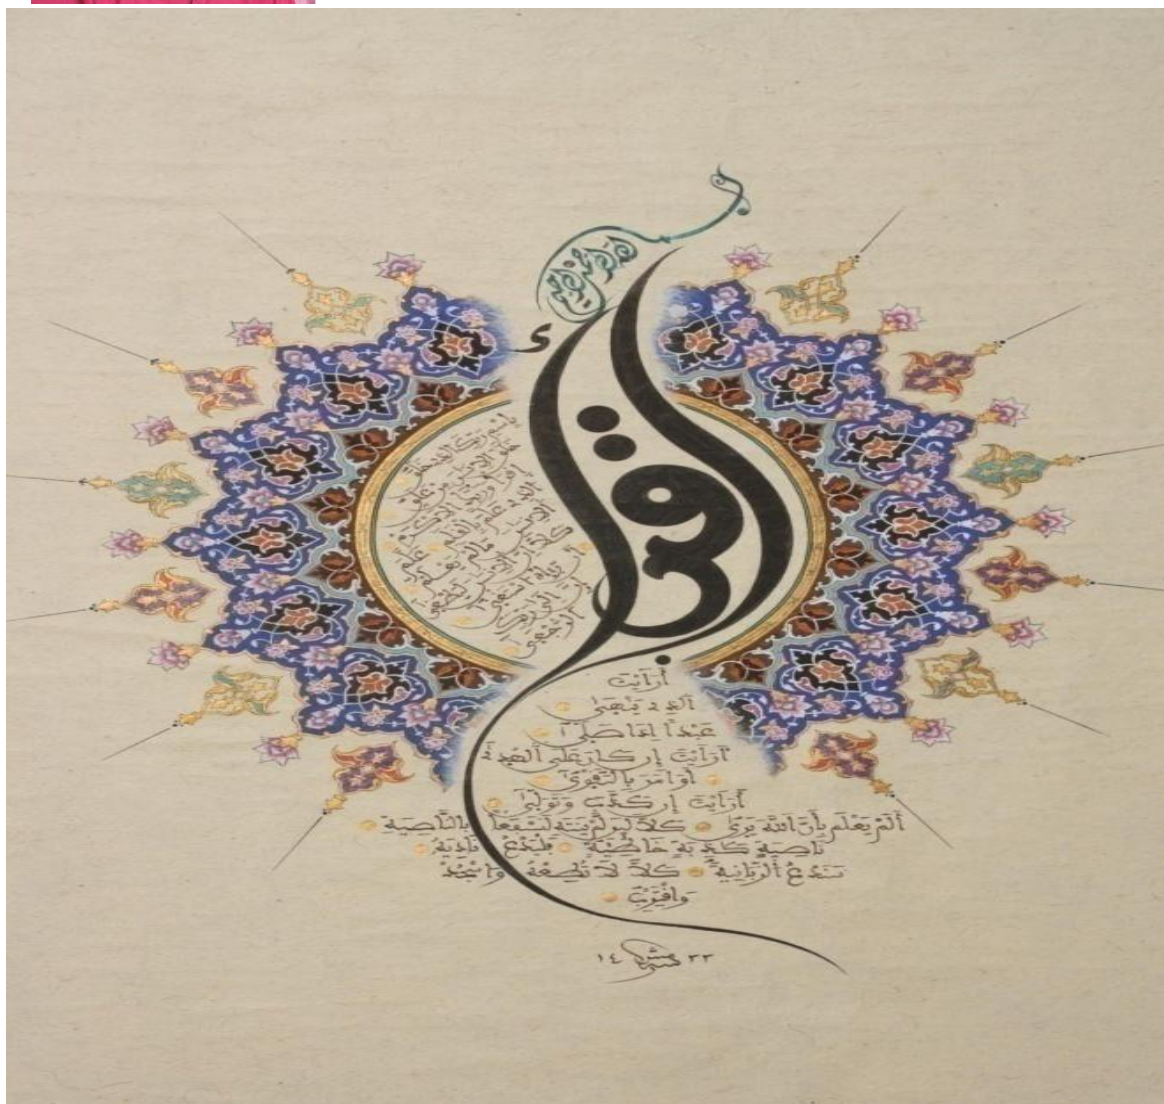 بسم الله الرحمن الرحيم
اقرأ
باسم ربك الذي خلق
خلق الإنسان من علق
اقرأ وربك الأكرم
الذي علم بالقلم علم
الإنسان ما لم يعلم
كلا إن الإنسان ليطغى
أن رآه استغنى
إن إلى ربك
الرجعى
أَرَأَيْتَ
الَّذِي يَنْهَىٰ
عَبْدًا إِذَا صَلَّىٰ
أَرَأَيْتَ إِن كَانَ عَلَى الْهُدَىٰ
أَوْ أَمَرَ بِالتَّقْوَىٰ
أَرَأَيْتَ إِن كَذَّبَ وَتَوَلَّىٰ
أَلَمْ يَعْلَم بِأَنَّ اللَّهَ يَرَىٰ كَلَّا لَئِن لَّمْ يَنتَهِ لَنَسْفَعًا بِالنَّاصِيَةِ
نَاصِيَةٍ كَاذِبَةٍ خَاطِئَةٍ فَلْيَدْعُ نَادِيَهُ
سَنَدْعُ الزَّبَانِيَةَ كَلَّا لَا تُطِعْهُ وَاسْجُدْ
وَاقْتَرِب
١٤ ٣٣